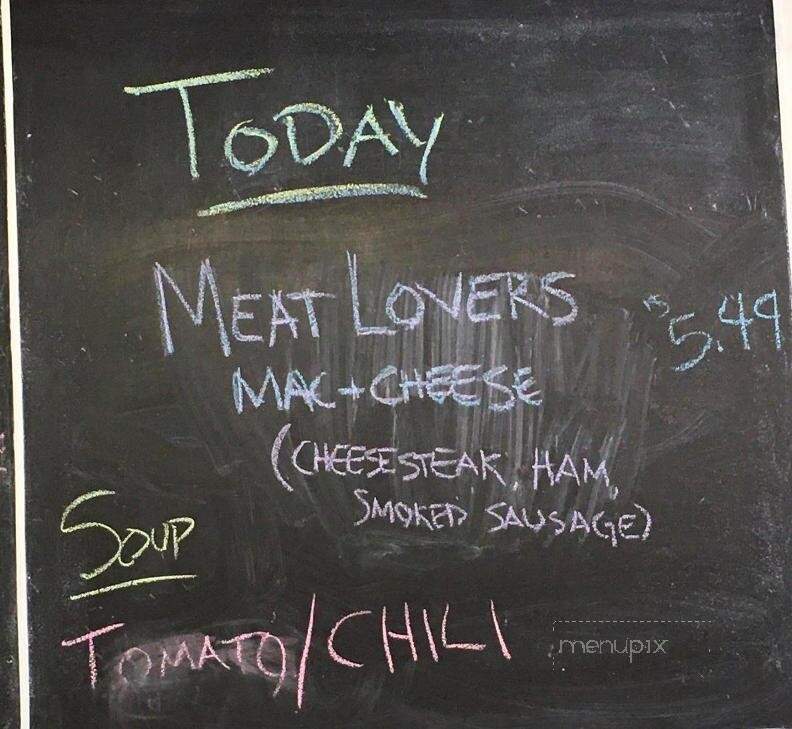 TODAY
MEAT LOVERS $5.49
MAC + CHEESE
(CHEESESTEAK, HAM,
SMOKED SAUSAGE)
SOUP
TOMATO/CHILI
menupix